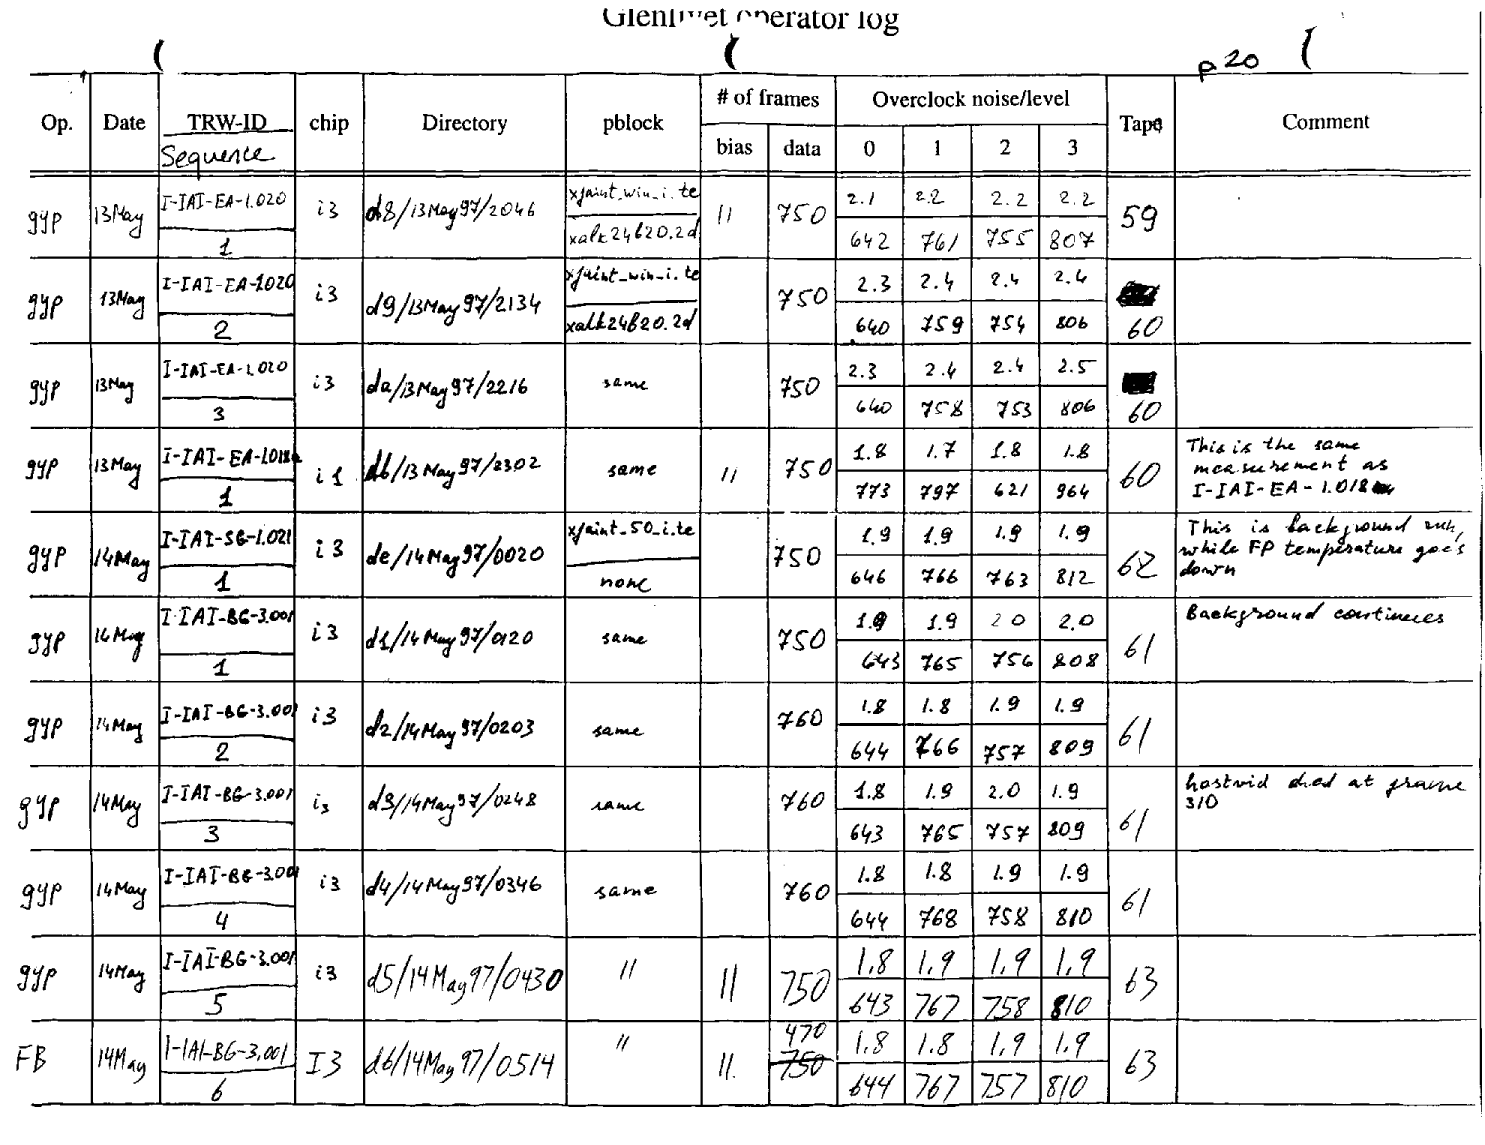 Glenlivet operator log
p 20
Op. Date TRW-ID Sequence chip Directory pblock # of frames Overclock noise/level Tape Comment
bias data 0 1 2 3
gyp 13May I-IAI-EA-1.020 i3 d8/13May97/2046 xjaint_win_i.te 11 750 2.1 2.2 2.2 2.2 59
1 xalk24b20.2d 642 761 755 807
gyp 13May I-IAI-EA-1.020 i3 d9/13May97/2134 xjaint_win_i.te 750 2.3 2.4 2.4 2.4
2 xalk24b20.2d 640 759 754 806 60
gyp 13May I-IAI-EA-1.020 i3 da/13May97/2216 same 750 2.3 2.4 2.4 2.5
3 640 758 753 806 60
gyp 13May I-IAI-EA-1.018 i1 db/13May97/2302 same 11 750 1.8 1.7 1.8 1.8 60 This is the same
measurement as
1 773 797 621 964 I-IAI-EA-1.018
gyp 14May I-IAI-SG-1.021 i3 de/14May97/0020 xjaint_50_i.te 750 1.9 1.9 1.9 1.9 62 This is background run,
while FP temperature goes
1 none 646 766 763 812 down
gyp 14May I-IAI-BG-3.001 i3 d1/14May97/0120 same 750 1.9 1.9 2.0 2.0 61 Background continues
1 643 765 756 808
gyp 14May I-IAI-BG-3.001 i3 d2/14May97/0203 same 760 1.8 1.8 1.9 1.9 61
2 644 766 757 809
gyp 14May I-IAI-BG-3.001 i3 d3/14May97/0248 same 760 1.8 1.9 2.0 1.9 61 hostvid died at frame
310
3 643 765 757 809
gyp 14May I-IAI-BG-3.001 i3 d4/14May97/0346 same 760 1.8 1.8 1.9 1.9 61
4 644 768 758 810
gyp 14May I-IAI-BG-3.001 i3 d5/14May97/0430 " 11 750 1.8 1.9 1.9 1.9 63
5 643 767 758 810
FB 14May I-IAI-BG-3.001 I3 d6/14May97/0514 " 11. 470 1.8 1.8 1.9 1.9 63
6 750 644 767 757 810